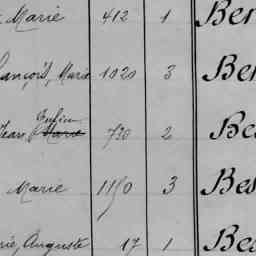 Marie 412 1 Ber
ançois, Marie 1020 3 Be
Jean, 730 2 Be
Marie 1150 3 Bes
rie, Auguste 17 1 Be